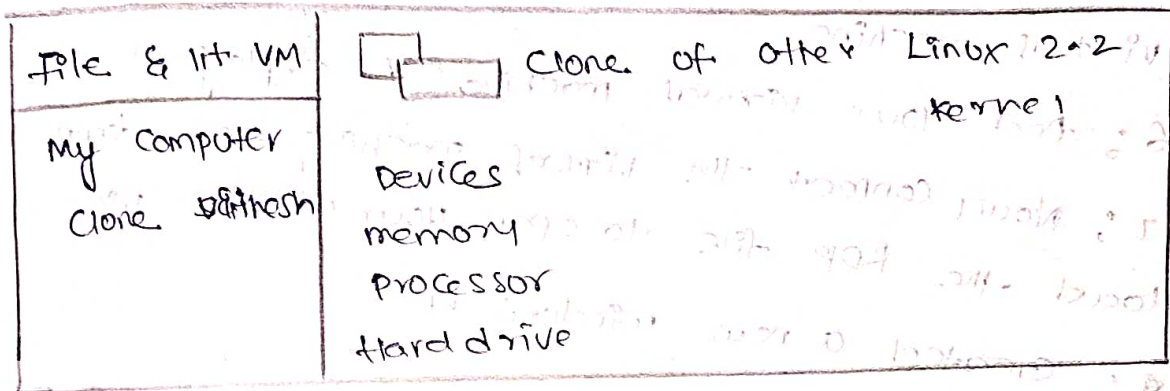 File & lit VM
My Computer
Clone
Clone of other Linux 2.2
kernel
Devices
memory
Processor
Hard drive